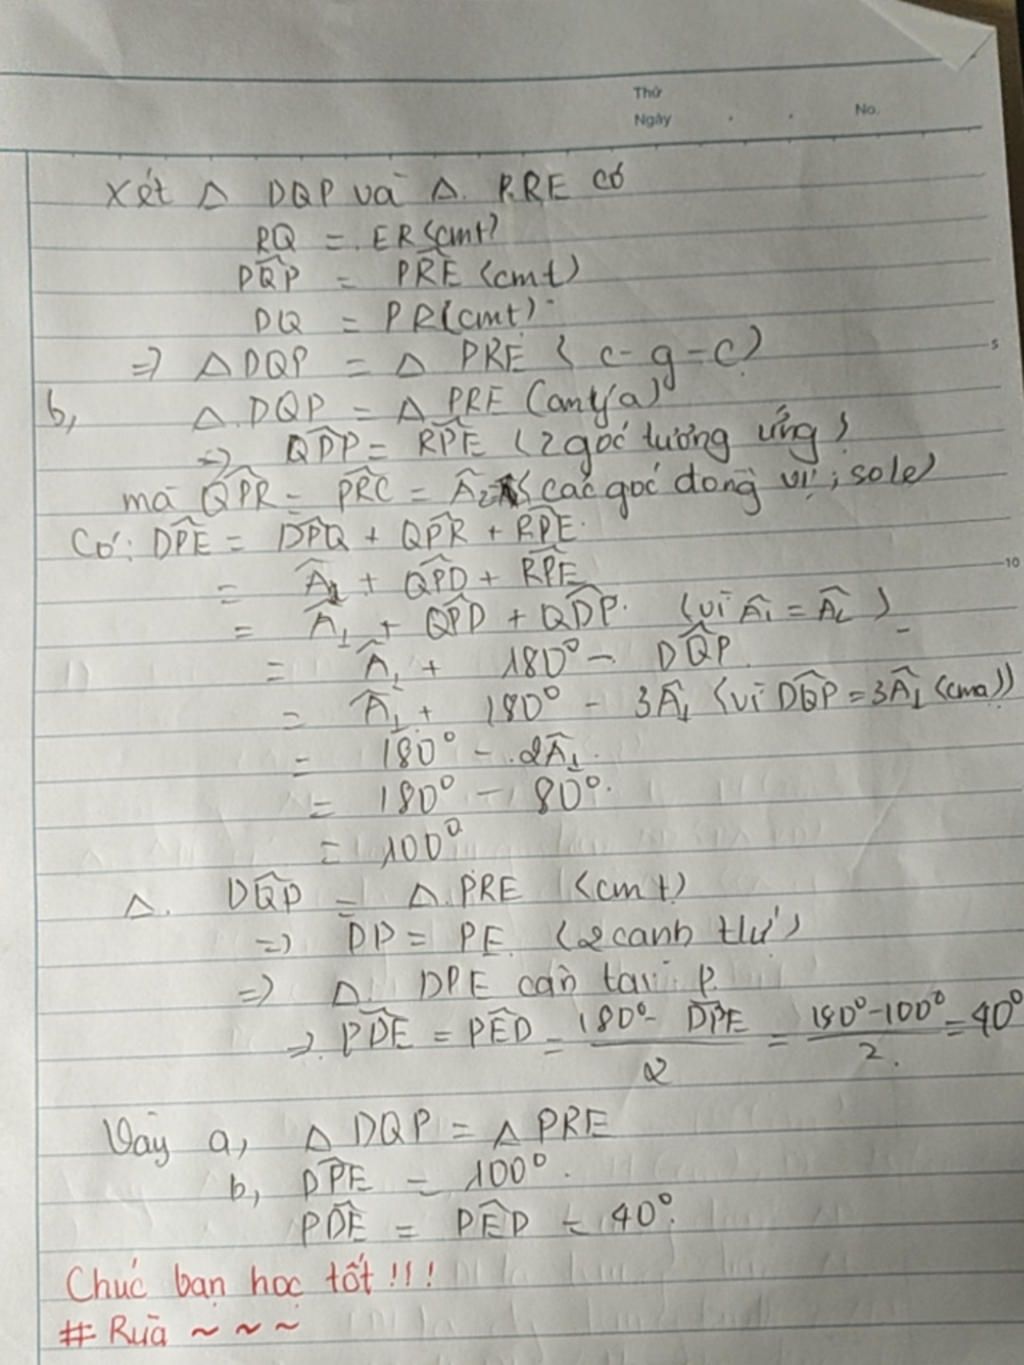 Thứ
Ngày . . No.
Xét △ DQP và △. PRE có
PQ = ER (cmt)
DQP̂ = PRÊ (cmt)
DQ = PR (cmt)
=> △ DQP = △ PRE (c-g-c)
5
b, △ DQP = △ PRE (cmt/a)
=> QDP̂ = RPÊ (2 góc tương ứng)
mà QPR̂ = PRĈ = Â₂ (các góc đồng vị; sole)
Có: DPÊ = DPQ̂ + QPR̂ + RPÊ.
10
= Â₁ + QPD̂ + RPÊ
= Â₁ + QPD̂ + QDP̂. (vì Â₁ = Â₂)
= Â₁ + 180⁰ - DQP̂
= Â₁ + 180⁰ - 3Â₁ (vì DQP̂ = 3Â₁ (cma))
= 180⁰ - 2Â₁.
= 180⁰ - 80⁰.
= 100⁰
△. DQP̂ = △. PRE (cmt)
=> DP = PE. (2 cạnh tứ)
=> △. DPE cân tại P.
=>. PDÊ = PED̂ = (180⁰ - DPÊ)/2 = (180⁰ - 100⁰)/2. = 40⁰
Vậy a, △ DQP = △ PRE
b, DPÊ = 100⁰.
PDÊ = PED̂ = 40⁰.
Chúc bạn học tốt !!!
# Rùa ~ ~ ~